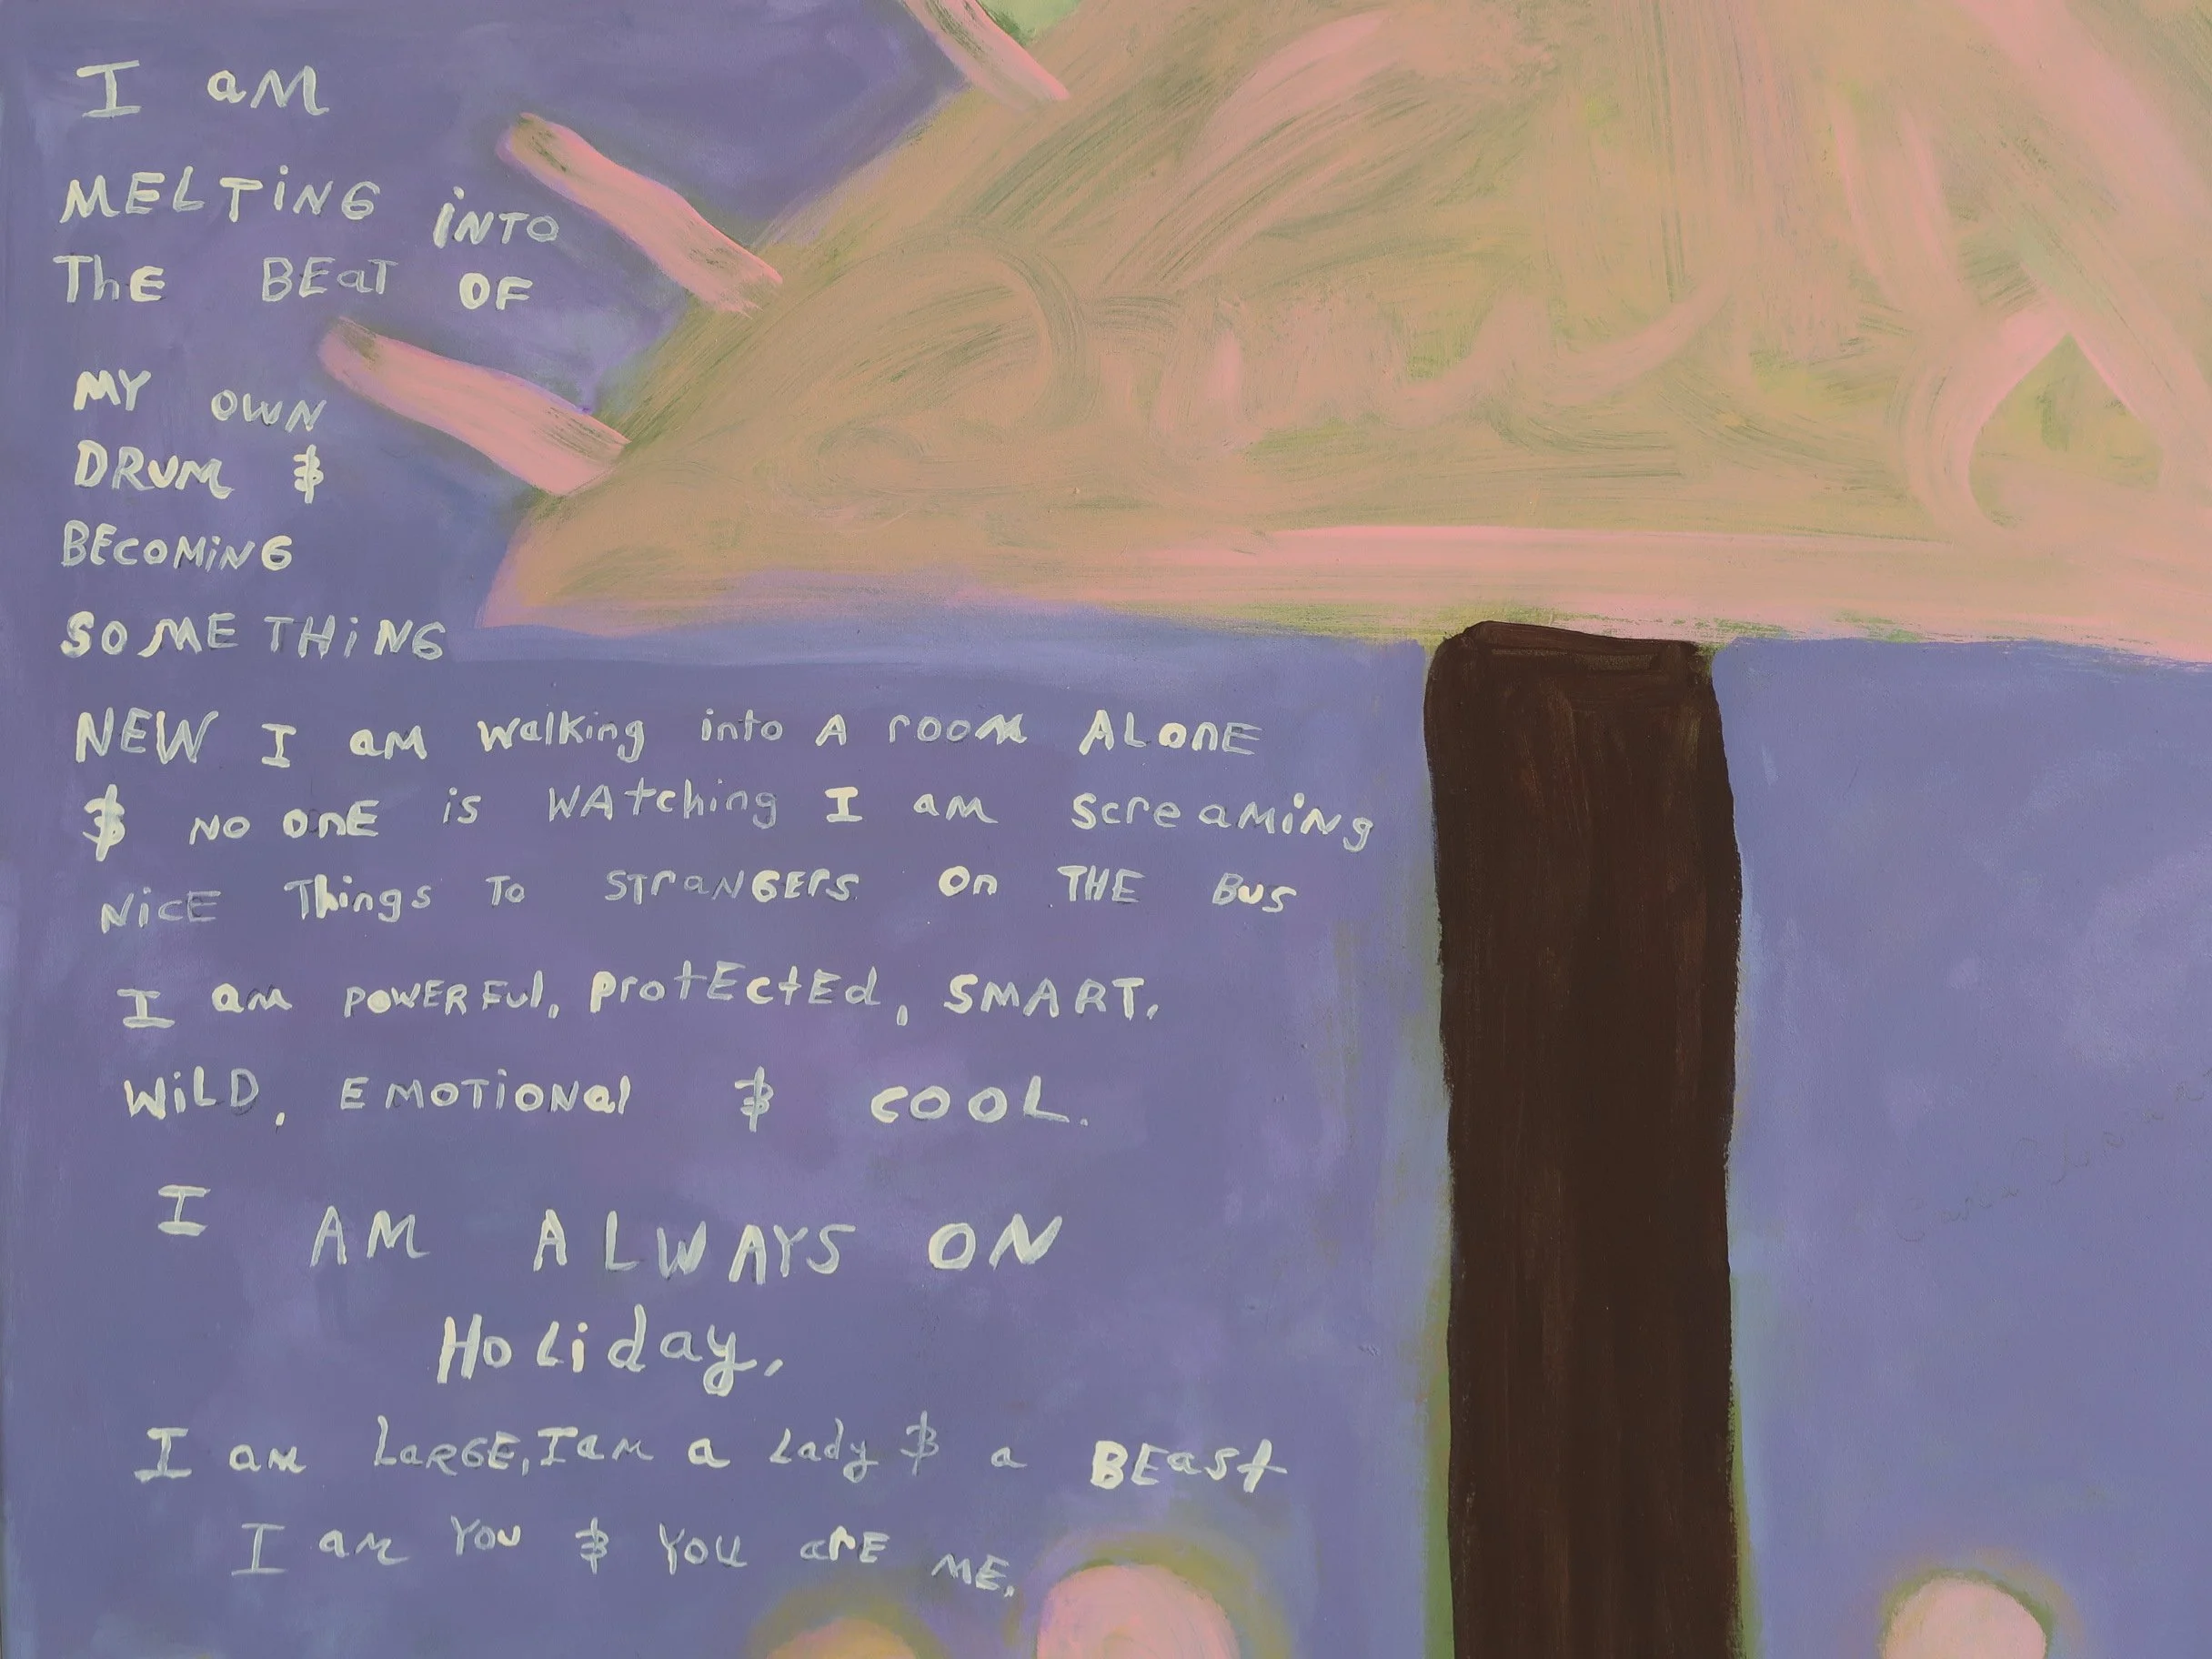 I aM
MELTiNG iNTO
ThE BEaT OF
MY OWN
DRUM &
BECOMiNG
SOMETHiNG
NEW I aM walking into A rooM ALonE
& NO onE is WAtching I am ScreaMiNg
NiCE Things To STraNGErs On THE Bus
I am POWERFul, ProtEctEd, SMART,
WiLD, EMOTiONal & COOL.
I AM ALWAYS ON
HoLiday,
I am LarGE, I am a Lady & a BEast
I am You & You arE ME,